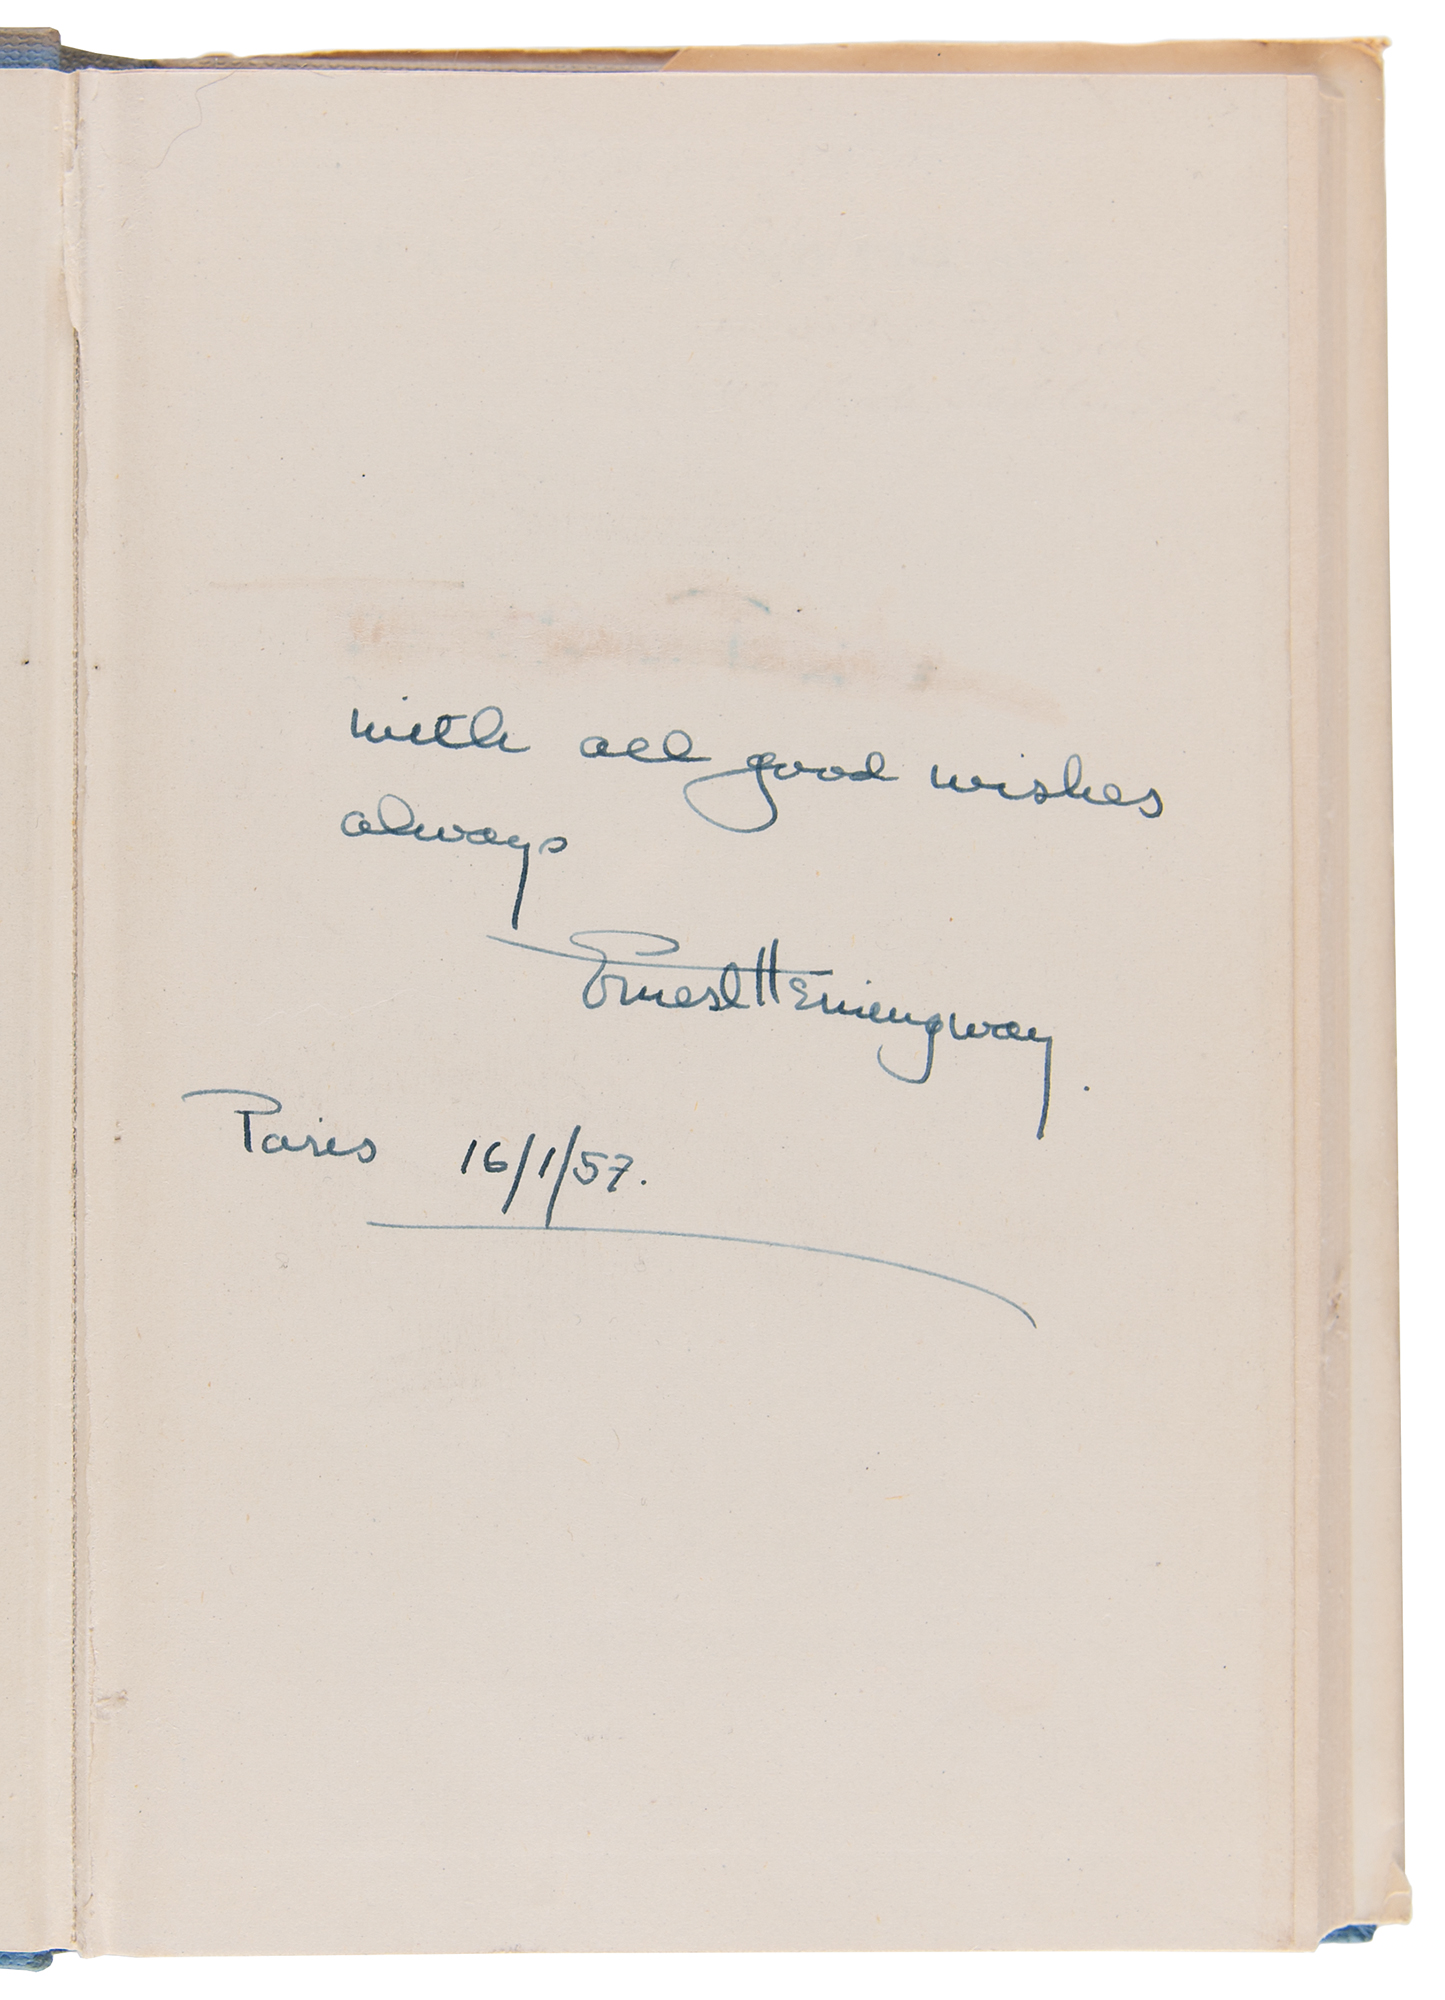 with all good wishes
always
Ernest Hemingway.
Paris 16/1/57.